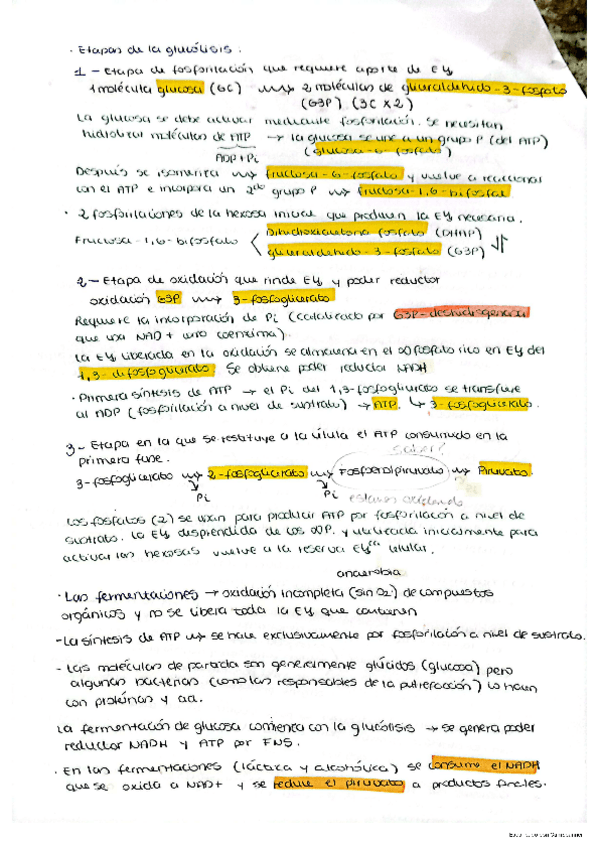 · Etapas de la glucólisis:
1 - Etapa de fosforilación que requiere aporte de Eg
1 molécula glucosa (6C) ⟿ 2 moléculas de gliceraldehido-3-fosfato
(G3P) (3C x 2)
La glucosa se debe activar mediante fosforilación. Se necesitan
hidrolizar moléculas de ATP → la glucosa se une a un grupo P (del ATP)
ADP + Pi (glucosa-6-fosfato)
Después se isomeriza ⟿ fructosa-6-fosfato y vuelve a reaccionar
con el ATP e incorpora un 2do grupo P ⟿ fructosa-1,6-bifosfat
· 2 fosforilaciones de la hexosa inicial que producen la Eg necesaria.
Fructosa-1,6-bifosfato < Dihidroxiacetona fosfato (DHAP)
gliceraldehido-3-fosfato (G3P) ⇅
2 - Etapa de oxidación que rinde Eg y poder reductor
oxidación G3P ⟿ 3-fosfoglicerato
Requiere la incorporación de Pi (catalizado por G3P-deshidrogenasa
que usa NAD+ como coenzima).
La Eg liberada en la oxidación se almacena en el fosfato rico en Eg del
1,3-difosfoglicerato. Se obtiene poder reductor NADH
· Primera síntesis de ATP → el Pi del 1,3-fosfoglicerato se transfiere
al ADP (fosforilación a nivel de sustrato) → ATP. ↳ 3-fosfoglicerato.
3 - Etapa en la que se restituye a la célula el ATP consumido en la
primera fase.
3-fosfoglicerato ⟿ 2-fosfoglicerato ⟿ Fosfoenolpiruvato ⟿ Piruvato.
Pi Pi estamos oxidando
Los fosfatos (2) se usan para producir ATP por fosforilación a nivel de
sustrato. La Eg desprendida de los y utilizada inicialmente para
activar las hexosas vuelve a la reserva Egca celular.
anaerobia
· Las fermentaciones → oxidación incompleta (sin O2) de compuestos
orgánicos y no se libera toda la Eg que contienen
- La síntesis de ATP ⟿ se hace exclusivamente por fosforilación a nivel de sustrato.
- Las moléculas de partida son generalmente glúcidos (glucosa) pero
algunas bacterias (como las responsables de la putrefacción) lo hacen
con proteínas y aa.
La fermentación de glucosa comienza con la glucólisis → se genera poder
reductor NADH y ATP por FNS.
· En las fermentaciones (láctica y alcohólica) se consume el NADH
que se oxida a NAD+ y se reduce el piruvato a productos finales.